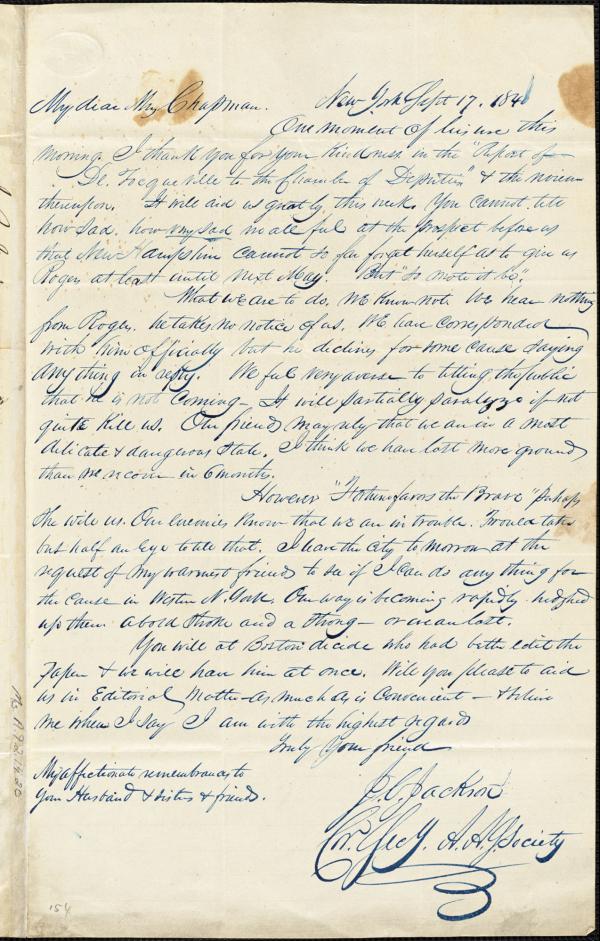 New York Sept 17. 1840
My dear Mrs Chapman.
One moment of leisure this
morning. I thank you for your kindness in the "Report of
De. Tocqueville to the Chamber of Deputies" & the review
thereupon. It will aid us greatly this week. You cannot tell
how sad. how very sad we all feel at the prospect before us
that New Hampshire cannot so far forget herself as to give us
Rogers at least until next May. But "so mote it be".
What we are to do. We know not We hear nothing
from Rogers. he takes no notice of us. We have corresponded
with him officially but he declines for some cause saying
any thing in reply. We feel very averse to telling the public
that he is not coming - It will partially paralyze if not
quite kill us. Our friends may rely that we are in a most
delicate & dangerous state. I think we have lost more ground
than we recover in 6 months.
However "Fortune favors the Brave" perhaps
she will us. Our enemies know that we are in trouble. Twould take
but half an eye to tell that. I leave the city to morrow at the
request of my warmest friends to see if I can do any thing for
the cause in Western N. York. Our way is becoming rapidly hedged
up there a bold stroke and a strong - or we are lost.
You will at Boston decide who had better edit the
Paper & we will have him at once. Will you please to aid
us in Editorial matter as much as is convenient - & believe
me when I say I am with the highest regards
truly your friend
J. C. Jackson
Cor. Secy. A. A. S. Society
My affectionate remembrances to
your Husband & sisters & friends.
Ms. A.9.2.14.20
154